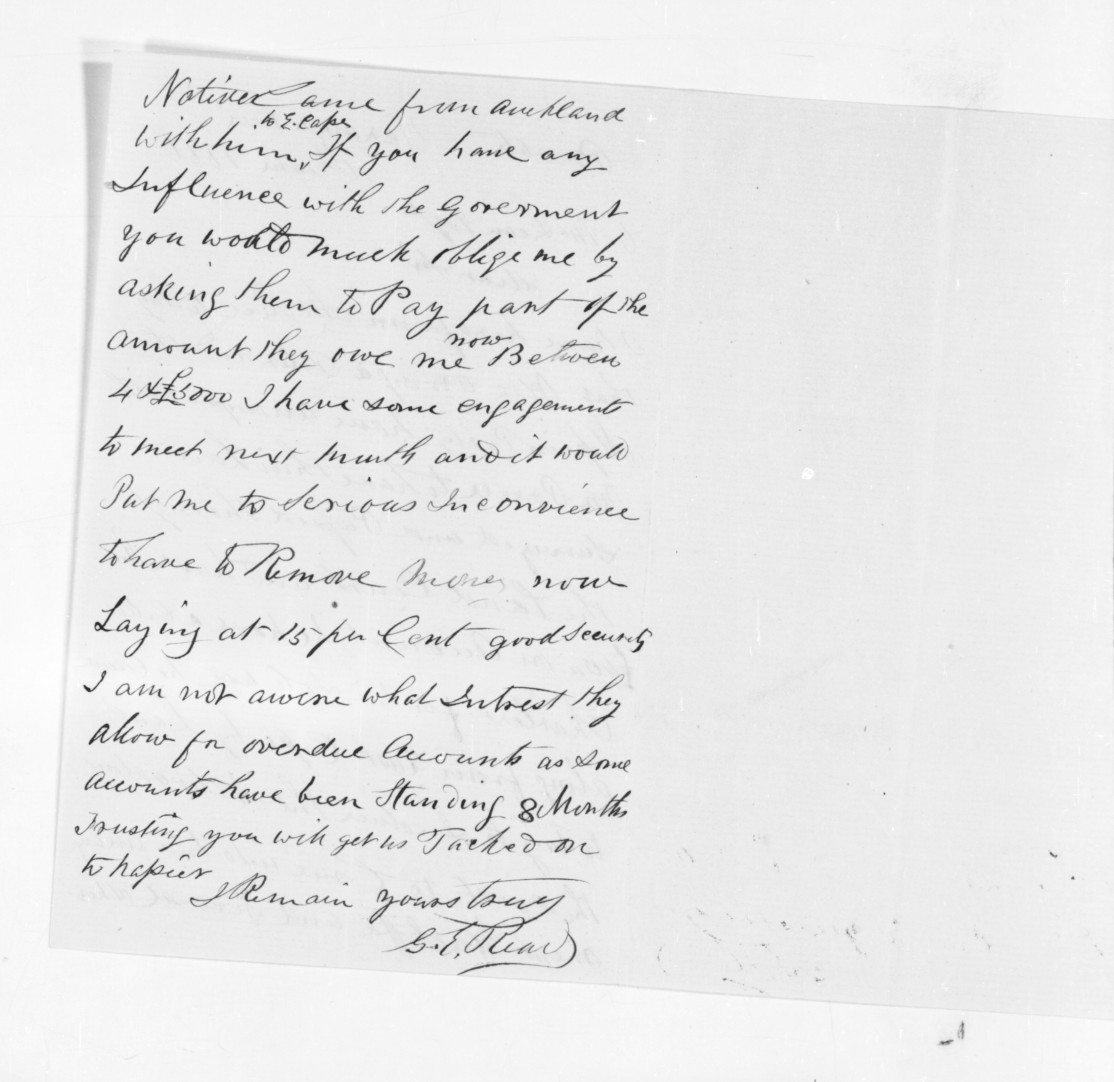 Natives Came from Auckland
to E. Cape
with him, If you have any
Influence with the Goverment
you would much oblige me by
asking them to Pay part of the
amount they owe me now Between
4 & £5000 I have some engagements
to meet next Month and it would
Put me to Serious Inconvience
to have to Remove Money now
Laying at 15 per Cent good Security
I am not aware what Intrest they
allow for overdue Accounts as some
accounts have been Standing 8 Months
Trusting you will get us Tacked on
to Napier
I Remain yours truly
G. E. Read